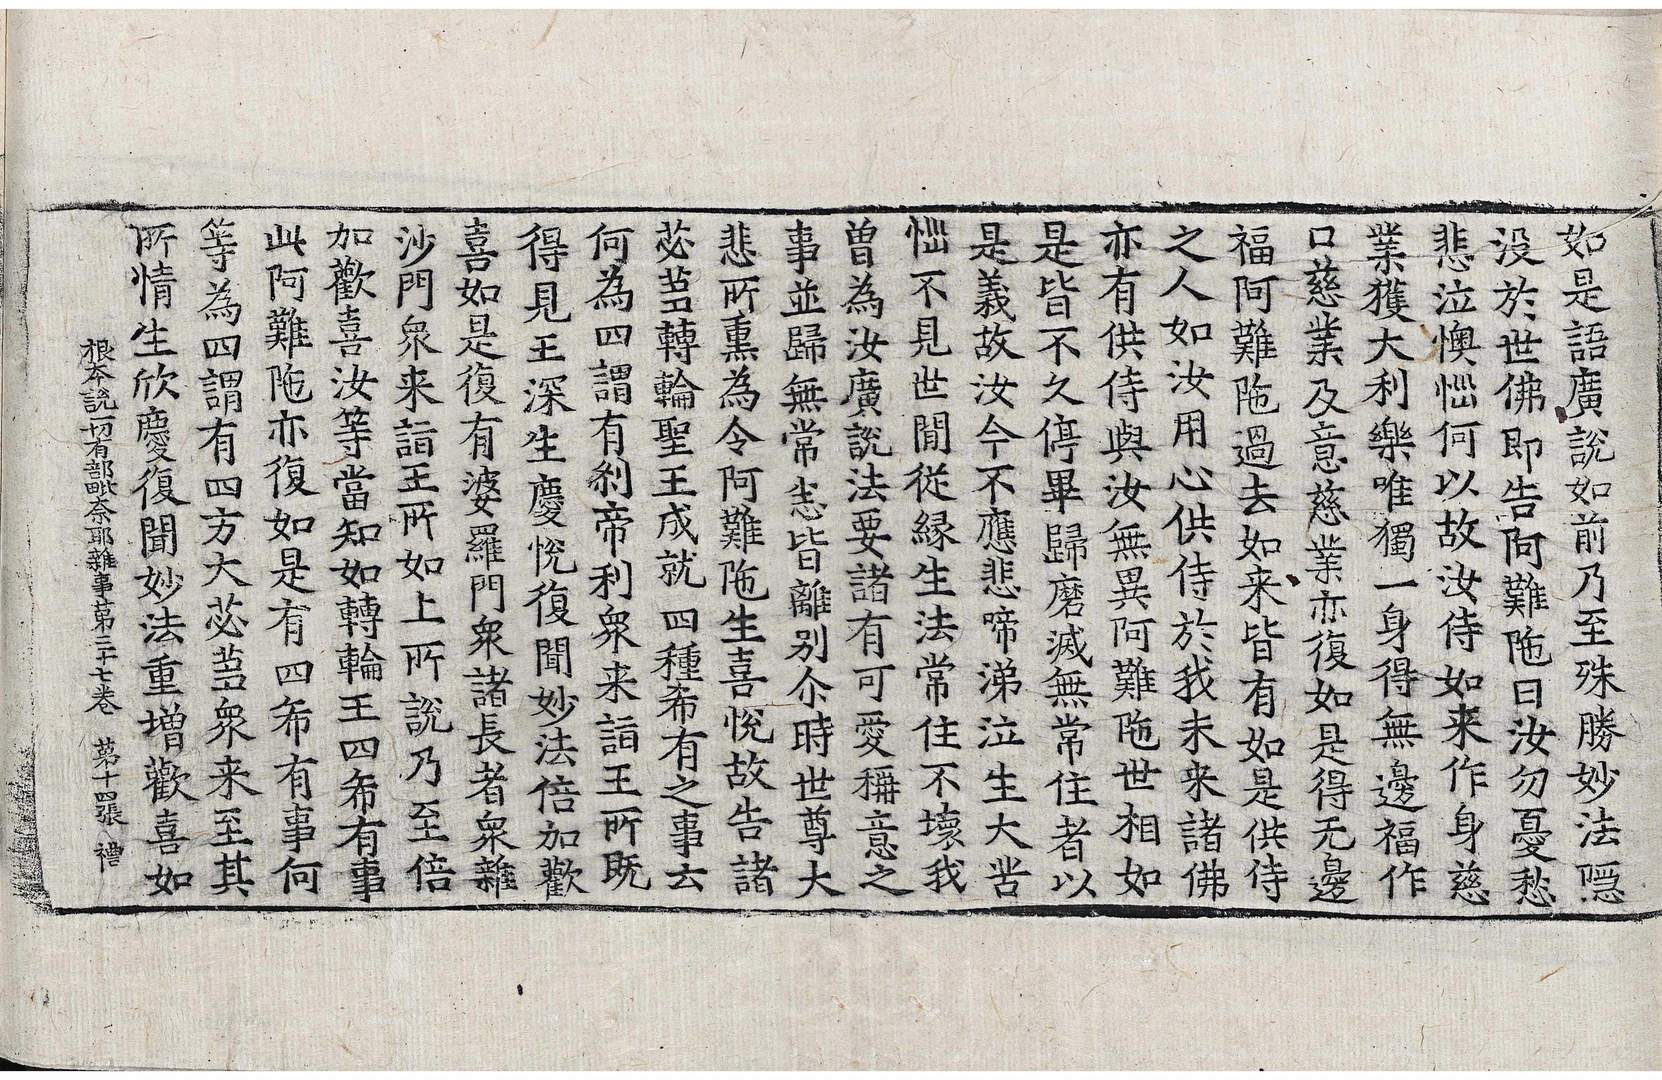 如是語廣說如前乃至殊勝妙法隱
没於世佛即告阿難陁曰汝勿憂愁
悲泣懊惱何以故汝侍如来作身慈
業獲大利樂唯獨一身得無邊福作
口慈業及意慈業亦復如是得无邊
福阿難陁過去如来皆有如是供侍
之人如汝用心供侍於我未来諸佛
亦有供侍與汝無異阿難陁世相如
是皆不久停畢歸磨滅無常住者以
是義故汝今不應悲啼涕泣生大苦
惱不見世間從緣生法常住不壞我
曽為汝廣說法要諸有可愛稱意之
事並歸無常恙皆離別尒時世尊大
悲所熏為令阿難陁生喜悅故告諸
苾芻轉輪聖王成就四種希有之事云
何為四謂有刹帝利衆来詣王所既
得見王深生慶悅復聞妙法倍加歡
喜如是復有婆羅門衆諸長者衆雜
沙門衆来詣王所如上所說乃至倍
加歡喜汝等當知如轉輪王四希有事
此阿難陁亦復如是有四希有事何
等為四謂有四方大苾芻衆来至其
所情生欣慶復聞妙法重增歡喜如
根本說一切有部毗奈耶雜事苐三十七卷 苐十四張 禮